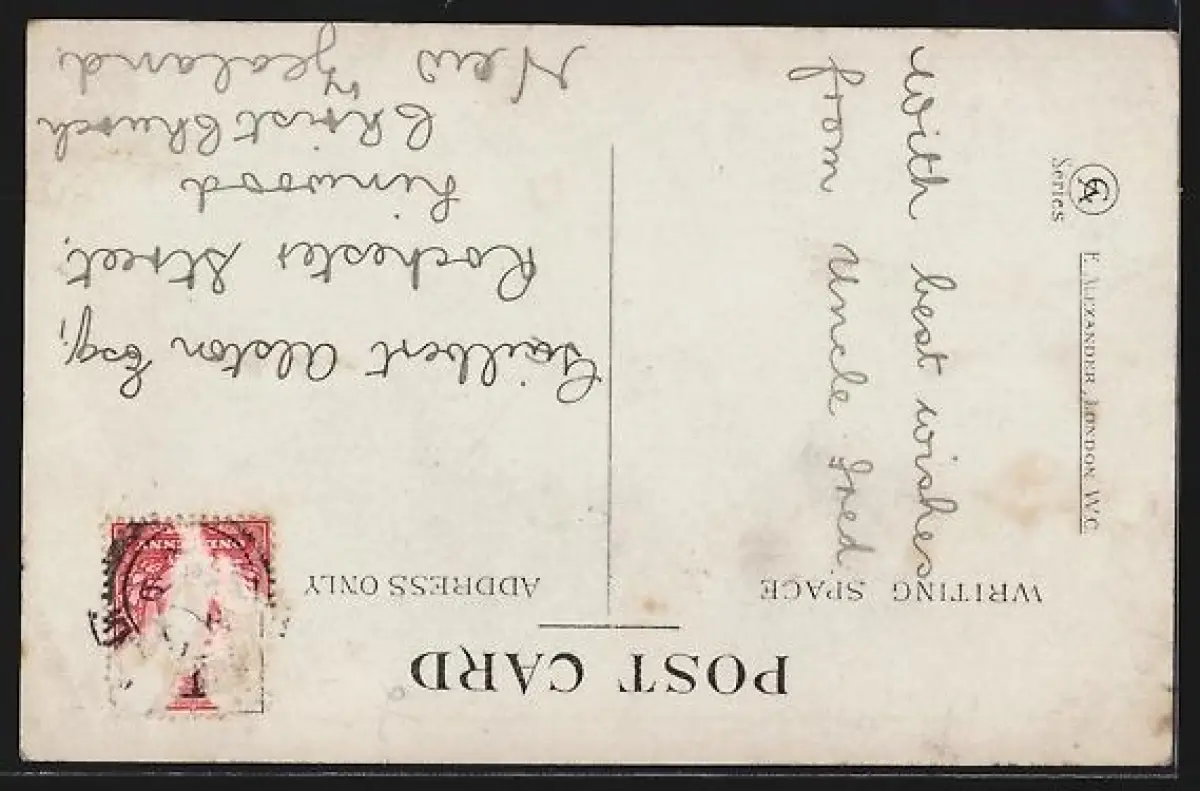 POST CARD
WRITING SPACE
ADDRESS ONLY
With best wishes
from Uncle Fred.
Gilbert Alston Esq,
Rochester Street,
Linwood
Christ Church
New Zealand.
Series
F. ALEXANDER, LONDON, W.C.
ONE PENNY